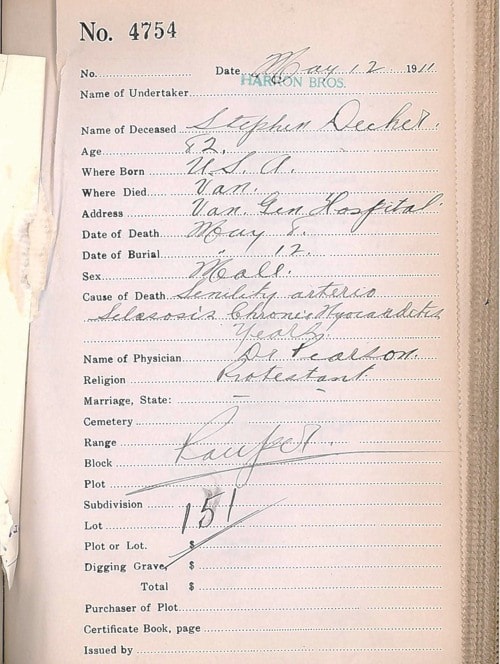 No. 4754
No. Date May 12 1911
HARRON BROS.
Name of Undertaker
Name of Deceased Stephen Decker.
Age 82.
Where Born U.S.A.
Where Died Van.
Address Van. Gen Hospital.
Date of Death May 8.
Date of Burial " 12.
Sex Male.
Cause of Death Senility arterio
Selarosis Chronic Myocarditis
Years.
Name of Physician Dr Pearson.
Religion Protestant.
Marriage, State: – –
Cemetery
Range
Block
Plot
Subdivision
Lot 151
Plot or Lot. $
Digging Grave, $
Total $
Purchaser of Plot
Certificate Book, page
Issued by